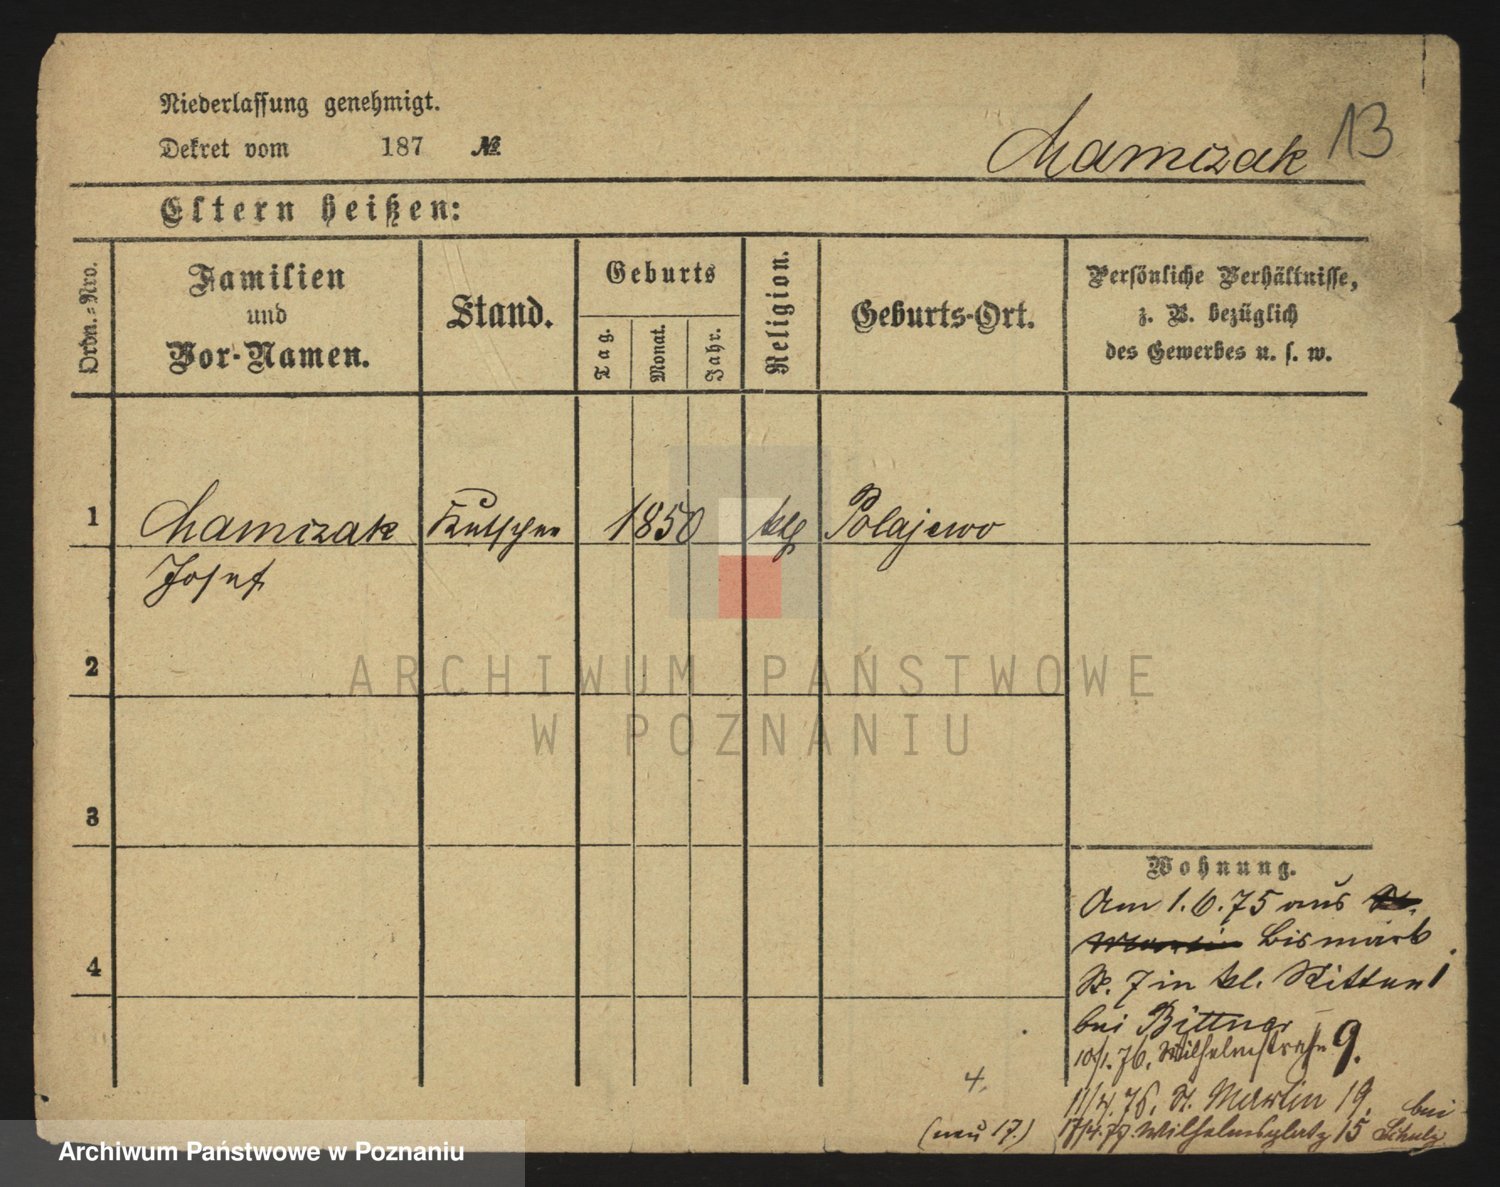 Niederlassung genehmigt.
Dekret vom 187 №
Mamczak 13
Eltern heißen:
Ordn.-Nro.
Familien
und
Vor-Namen.
Stand.
Geburts
Tag.
Monat.
Jahr.
Religion.
Geburts-Ort.
Persönliche Verhältnisse,
z. B. bezüglich
des Gewerbes u. s. w.
1 Mamczak Kutscher 1850 ktl Polajewo
Josef
2
3
4
Wohnung.
Am 1.6.75 aus St.
Martin Bismark
St. 7 in kl. Ritter 1
bei Bittner
10/1.76. Wilhelmstraße 9.
11/4.76. St. Martin 19. bei
17/4.79. Wilhelmsplatz 15 Schulz
4.
(neu 17.)
ARCHIWUM PAŃSTWOWE
W POZNANIU
Archiwum Państwowe w Poznaniu